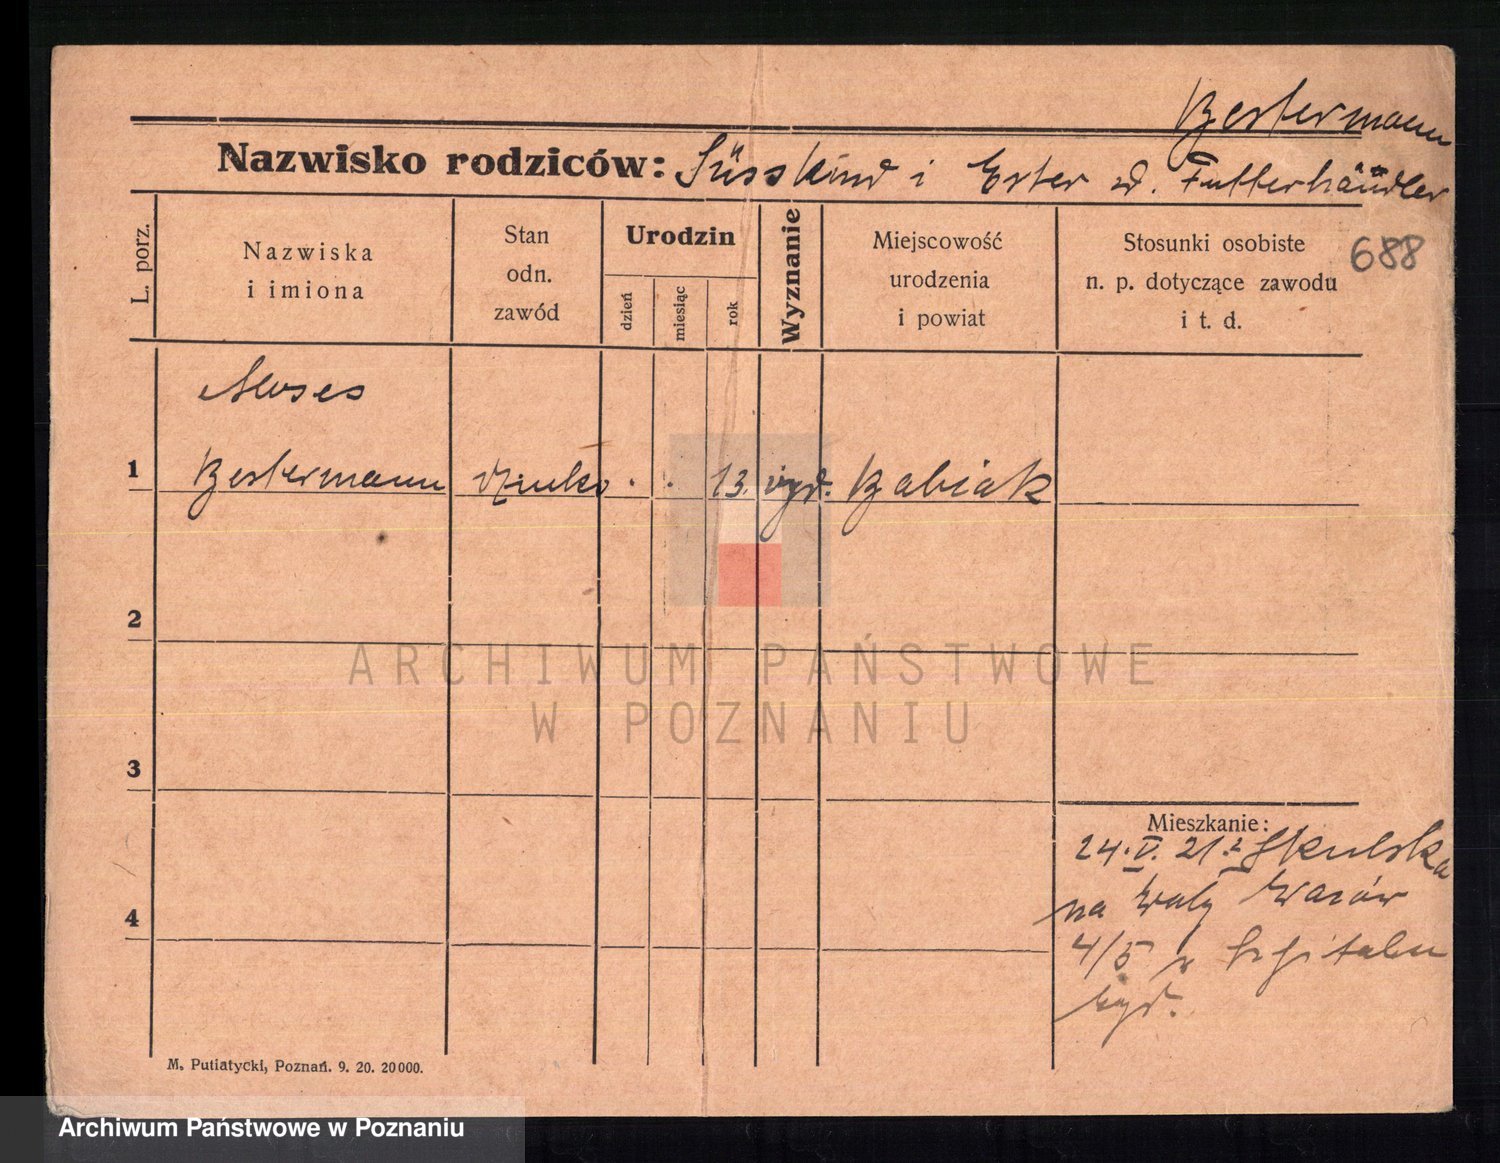 Bestermann
Nazwisko rodziców: Süsskind i Ester z d. Futterhändler
688
L. porz.
Nazwiska
i imiona
Stan
odn.
zawód
Urodzin
dzień
miesiąc
rok
Wyznanie
Miejscowość
urodzenia
i powiat
Stosunki osobiste
n. p. dotyczące zawodu
i t. d.
Moses
1 Bestermann dziecko . . 13. żyd. Babiak
2
3
4
Mieszkanie:
24.V.21 z Skulska
na Wały Wazów
4/5 w Szpitalu
żyd.
M. Putiatycki, Poznań. 9. 20. 20000.
ARCHIWUM PAŃSTWOWE
W POZNANIU
Archiwum Państwowe w Poznaniu